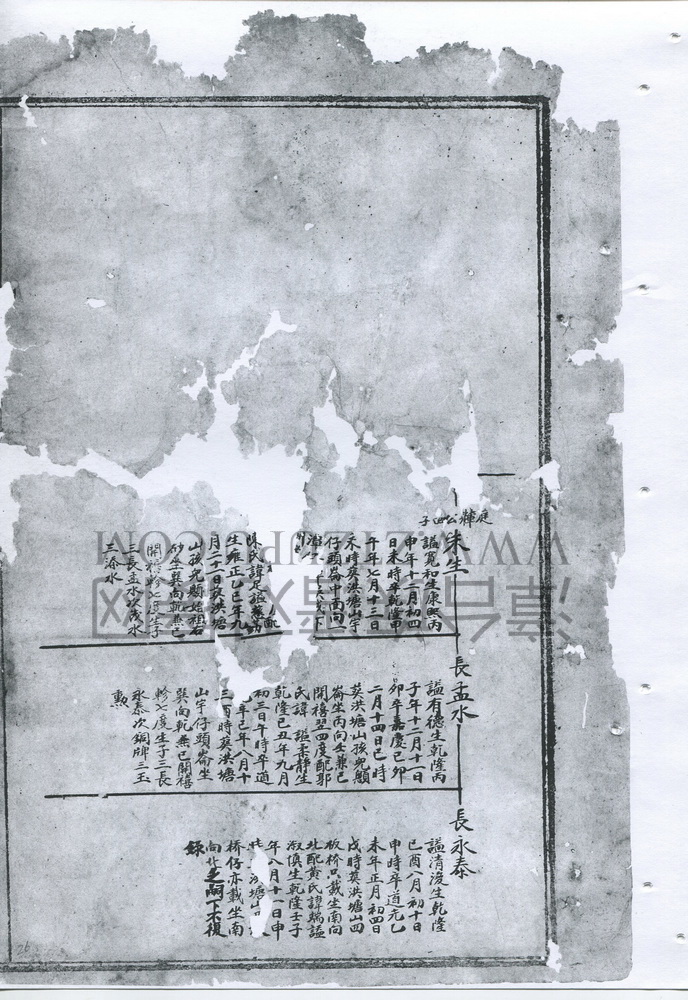 庭輝公四子
朱生
謚寬和生康熙丙
申年十二月初四
日未時卒乾隆甲
午年七月十三日
未時葬洪塘山宇
仔頭崙中面向一
陳氏諱
生雍正乙巳年九
月二十一日葬洪塘
山孩兒顯始祖右
砂坐巽向乾兼巳
開禧軫七度生子
三長孟水次淺水
三添水
長孟水
謚有德生乾隆丙
子年十二月十一日
卯卒嘉慶己卯
二月十四日巳時
葬洪塘山孩兒顯
崙坐丙向壬兼巳
開禧翌四度配郭
氏諱 謚柔靜生
乾隆己丑年九月
初三日午時卒道
光年己年八月十
三酉時葬洪塘
山宇仔頭崙坐
巽向乾兼巳開禧
軫七度生子三長
永泰次銅牌三玉
勲
長永泰
謚清浚生乾隆
己酉八月初十日
申時卒道光乙
未年正月初四日
戌時葬洪塘山四
板橋只載坐南向
北配黃氏諱 謚
淑慎生乾隆壬子
年八月十一日申
洪塘山
橋仔亦載坐南
向北乏嗣下不復
錄
WWW.WIZUPU.COM